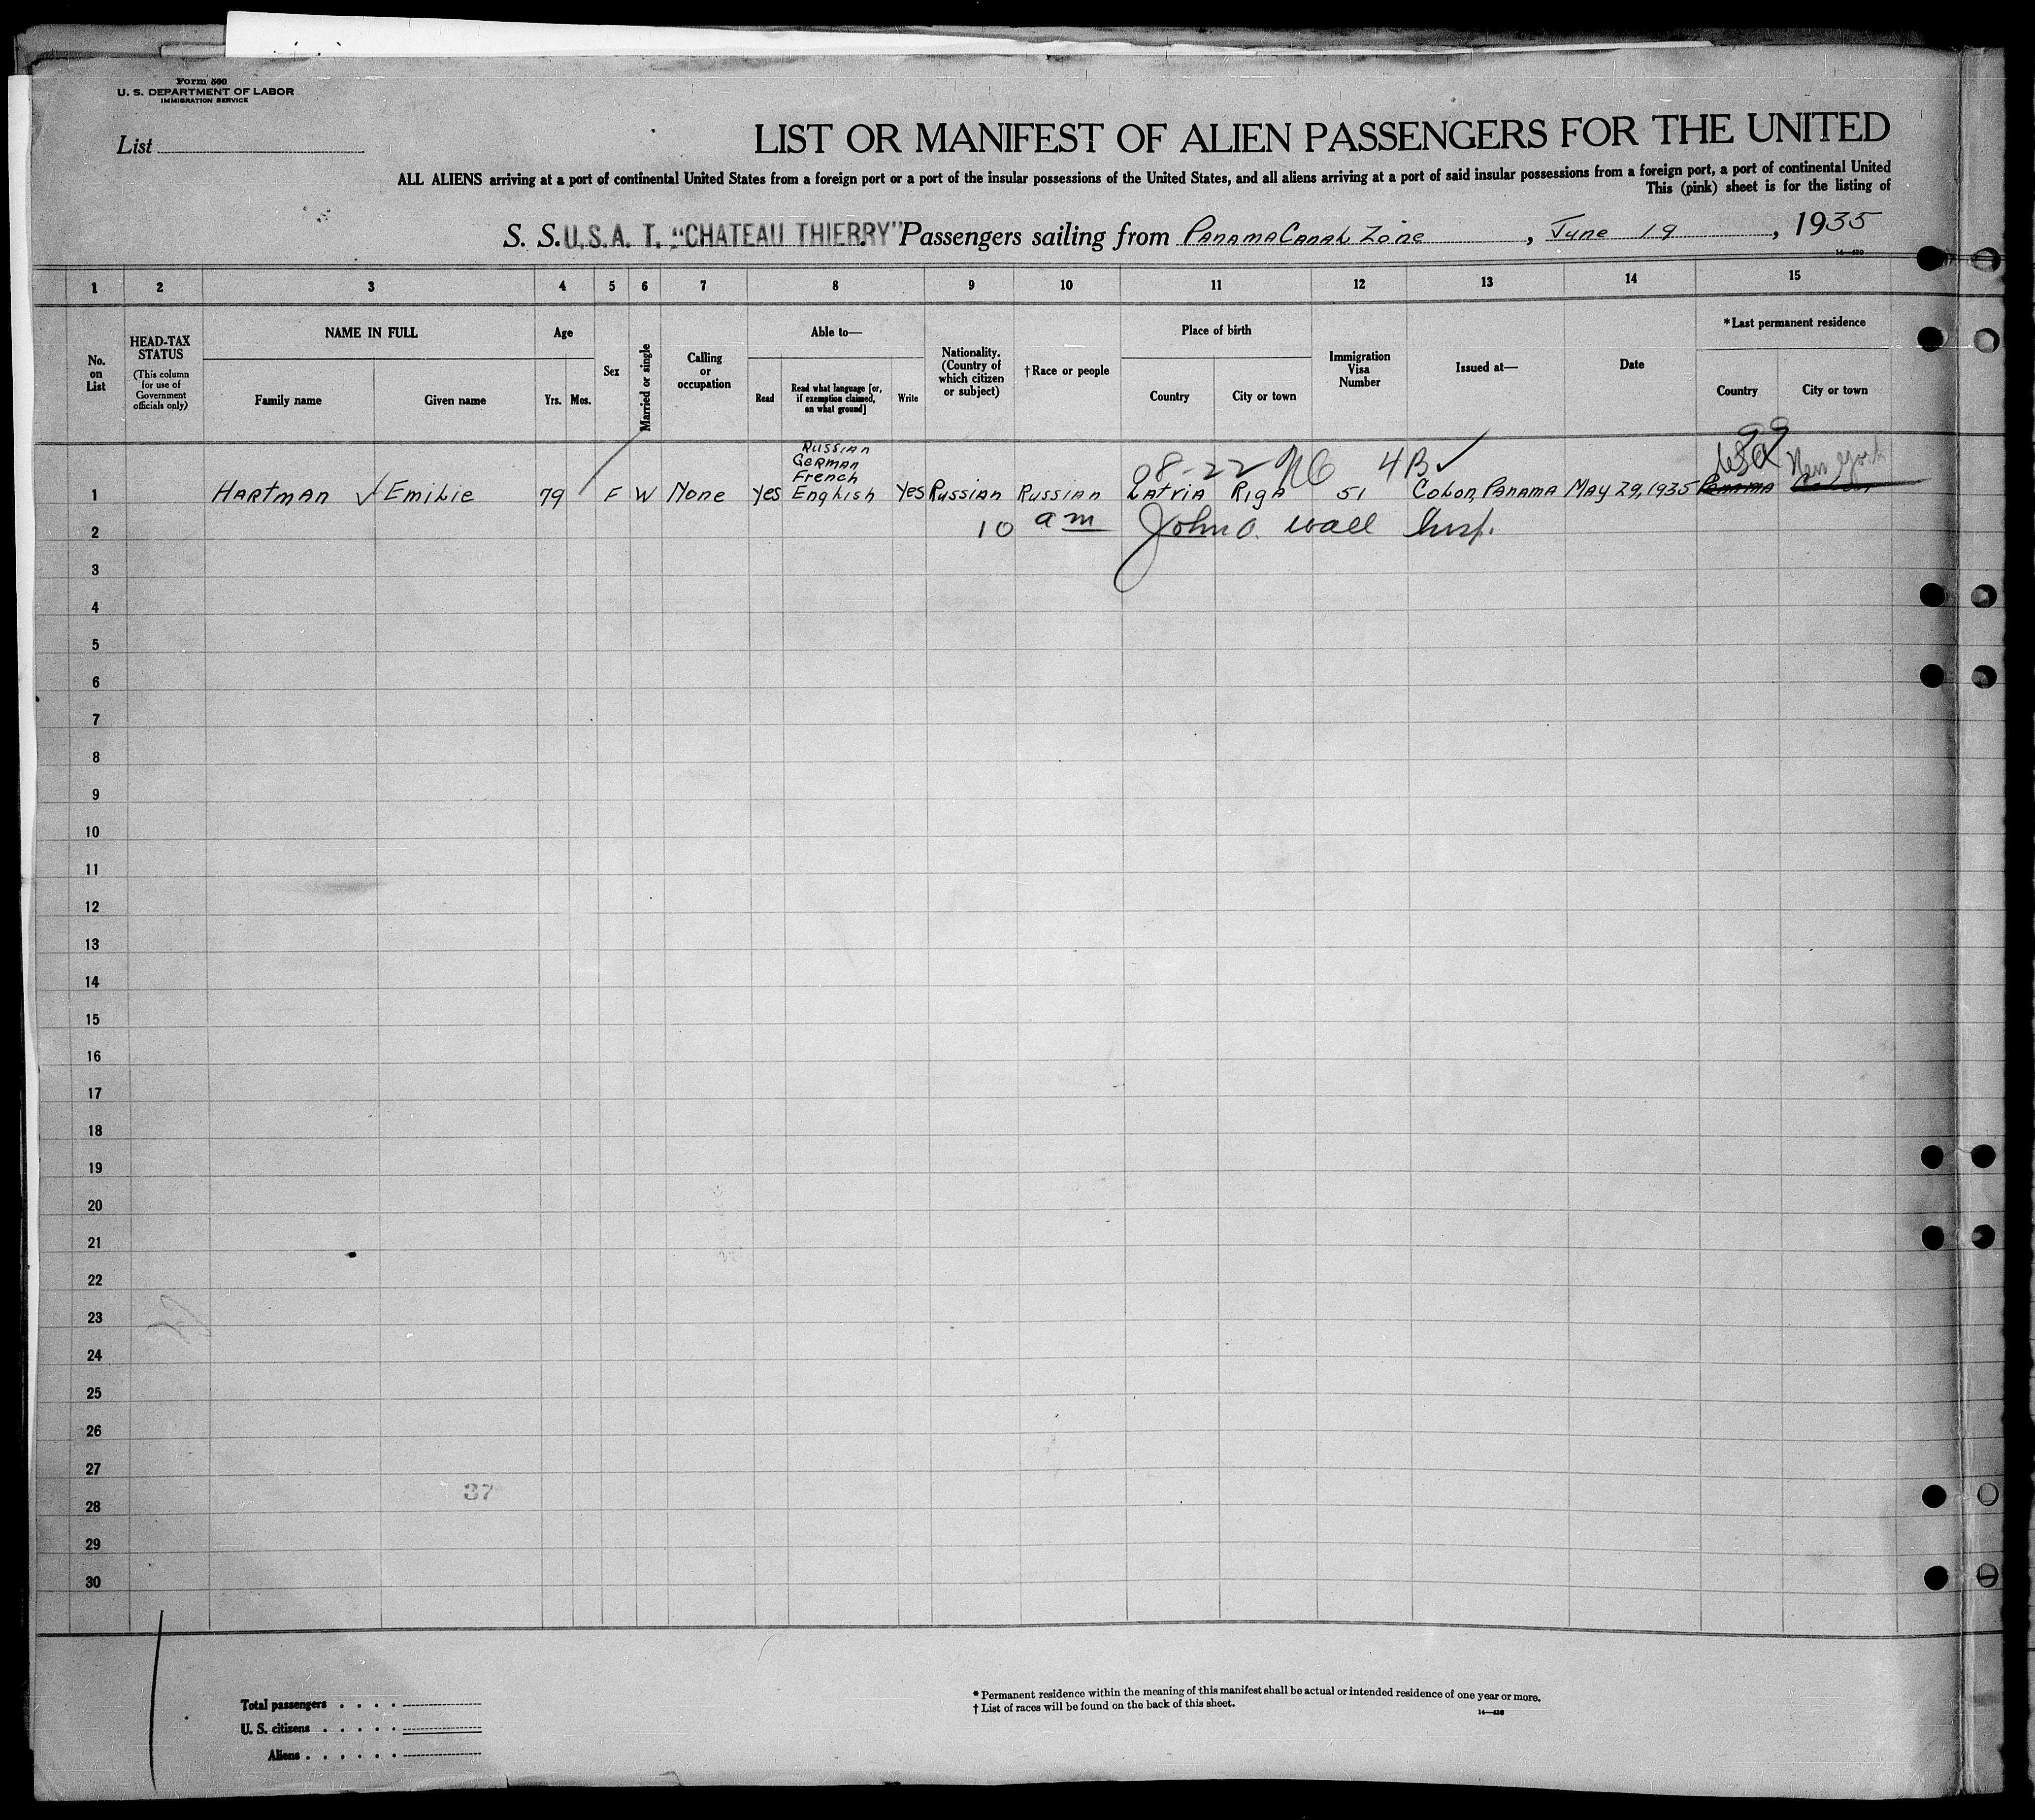 Form 500
U. S. DEPARTMENT OF LABOR
IMMIGRATION SERVICE
List
LIST OR MANIFEST OF ALIEN PASSENGERS FOR THE UNITED
ALL ALIENS arriving at a port of continental United States from a foreign port or a port of the insular possessions of the United States, and all aliens arriving at a port of said insular possessions from a foreign port, a port of continental United
This (pink) sheet is for the listing of
S. S. U.S.A.T. "CHATEAU THIERRY" Passengers sailing from Panama Canal Zone, June 19, 1935
1 2 3 4 5 6 7 8 9 10 11 12 13 14 15
No. on List
HEAD-TAX STATUS
(This column for use of Government officials only)
NAME IN FULL
Family name Given name
Age
Yrs. Mos.
Sex
Married or single
Calling or occupation
Able to—
Read
Read what language [or, if exemption claimed, on what ground]
Write
Nationality. (Country of which citizen or subject)
†Race or people
Place of birth
Country City or town
Immigration Visa Number
Issued at—
Date
*Last permanent residence
Country City or town
Russian
German
French
08-22 4B✓ 99
USA New York
1 Hartman ✓ Emilie 79 F W None Yes English Yes Russian Russian Latvia Riga 51 Colon, Panama May 29, 1935 Panama
2 10 am John O. Wall Insp.
3
4
5
6
7
8
9
10
11
12
13
14
15
16
17
18
19
20
21
22
23
24
25
26
27
37
28
29
30
Total passengers
U. S. citizens
Aliens
* Permanent residence within the meaning of this manifest shall be actual or intended residence of one year or more.
† List of races will be found on the back of this sheet.